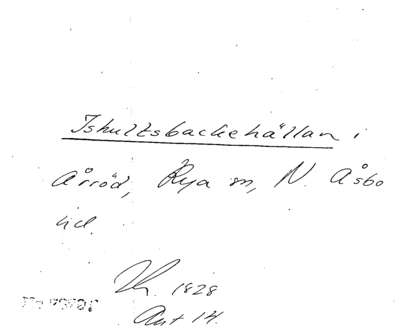 Ishultsbackehällan i
Årröd, Rya sn, N. Åsbo
hd.
1828
14.